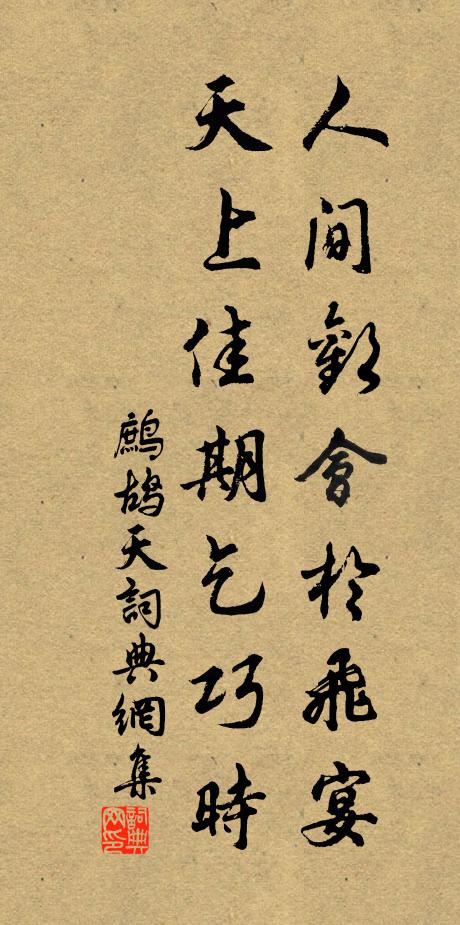 人間歡會於飛宴
天上佳期乞巧時
鷓鴣天詞典網集
詞典
网印